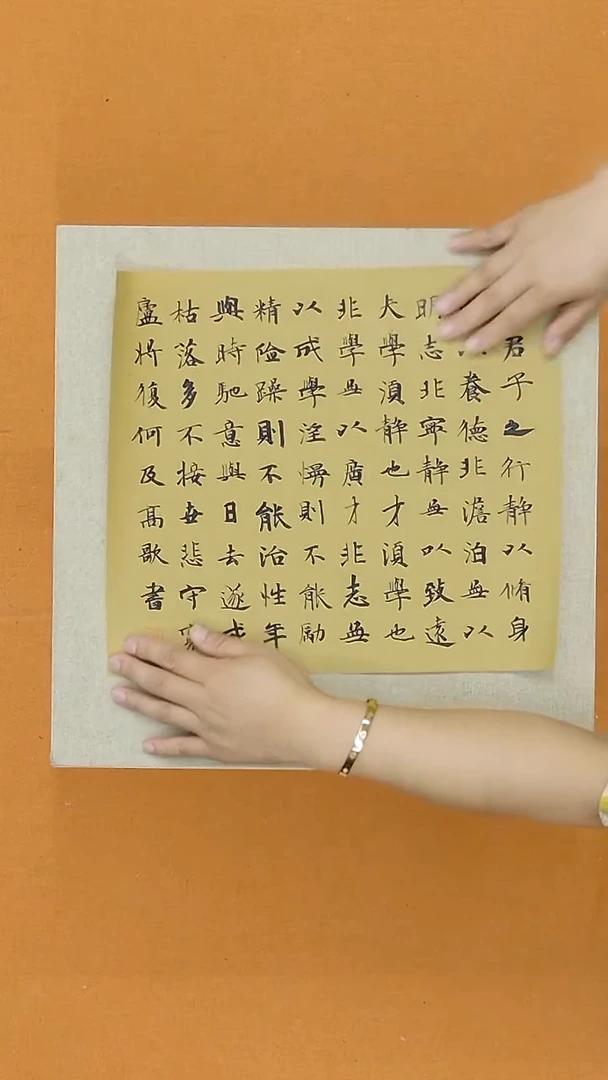 君子之行静以脩身
以養德非澹泊無以
明志非寧静無以致遠
夫學湏静也才湏學也
非學無以廣才非志無
以成學淫慢則不能勵
精險躁則不能治性年
與時馳意與日去遂成
枯落多不接世悲守窮
廬將復何及高歌書